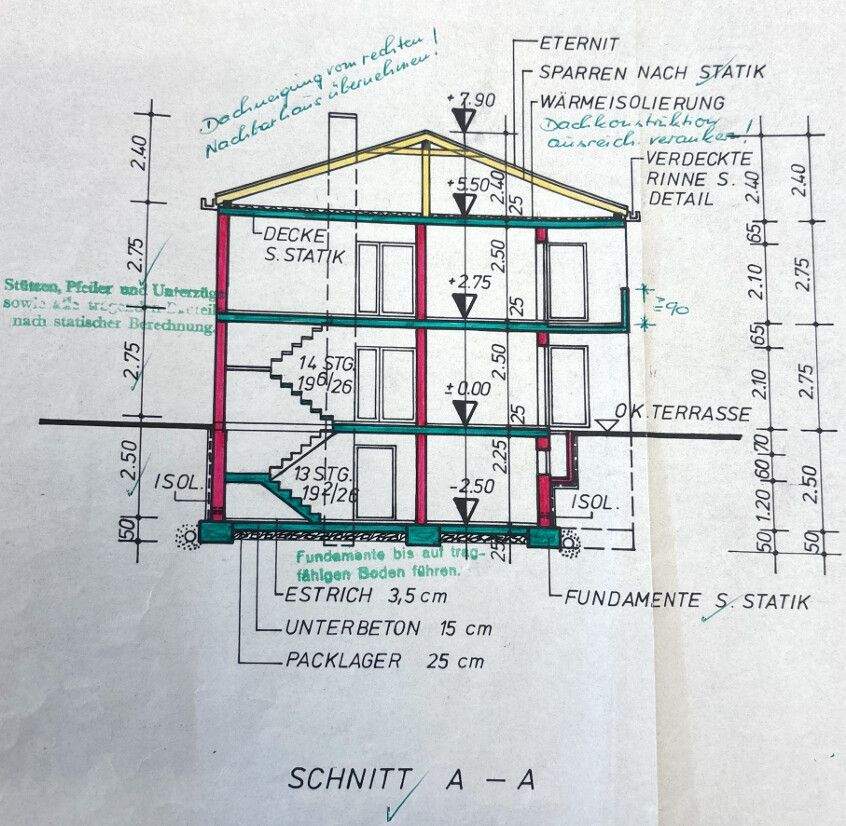 Dachneigung vom rechten!
Nachbarhaus übernehmen!
ETERNIT
SPARREN NACH STATIK
WÄRMEISOLIERUNG
Dachkonstruktion
ausreich. verankern!
VERDECKTE
RINNE S.
DETAIL
+7.90
+5.50
+2.75
±0.00
-2.50
2.40
2.75
2.75
2.50
50
DECKE
S. STATIK
Stützen, Pfeiler und Unterzüge
sowie alle tragenden
nach statischer Berechnung.
14 STG.
19⁶/26
13 STG.
19²/26
2.40
25
2.50
25
2.50
25
2.25
25
≥90
OK. TERRASSE
ISOL.
ISOL.
2.40
65
2.10
65
2.10
70
60
1.20
50
2.40
2.75
2.75
2.50
50
Fundamente bis auf trag-
fähigen Boden führen.
ESTRICH 3,5 cm
UNTERBETON 15 cm
PACKLAGER 25 cm
FUNDAMENTE S. STATIK
SCHNITT A – A